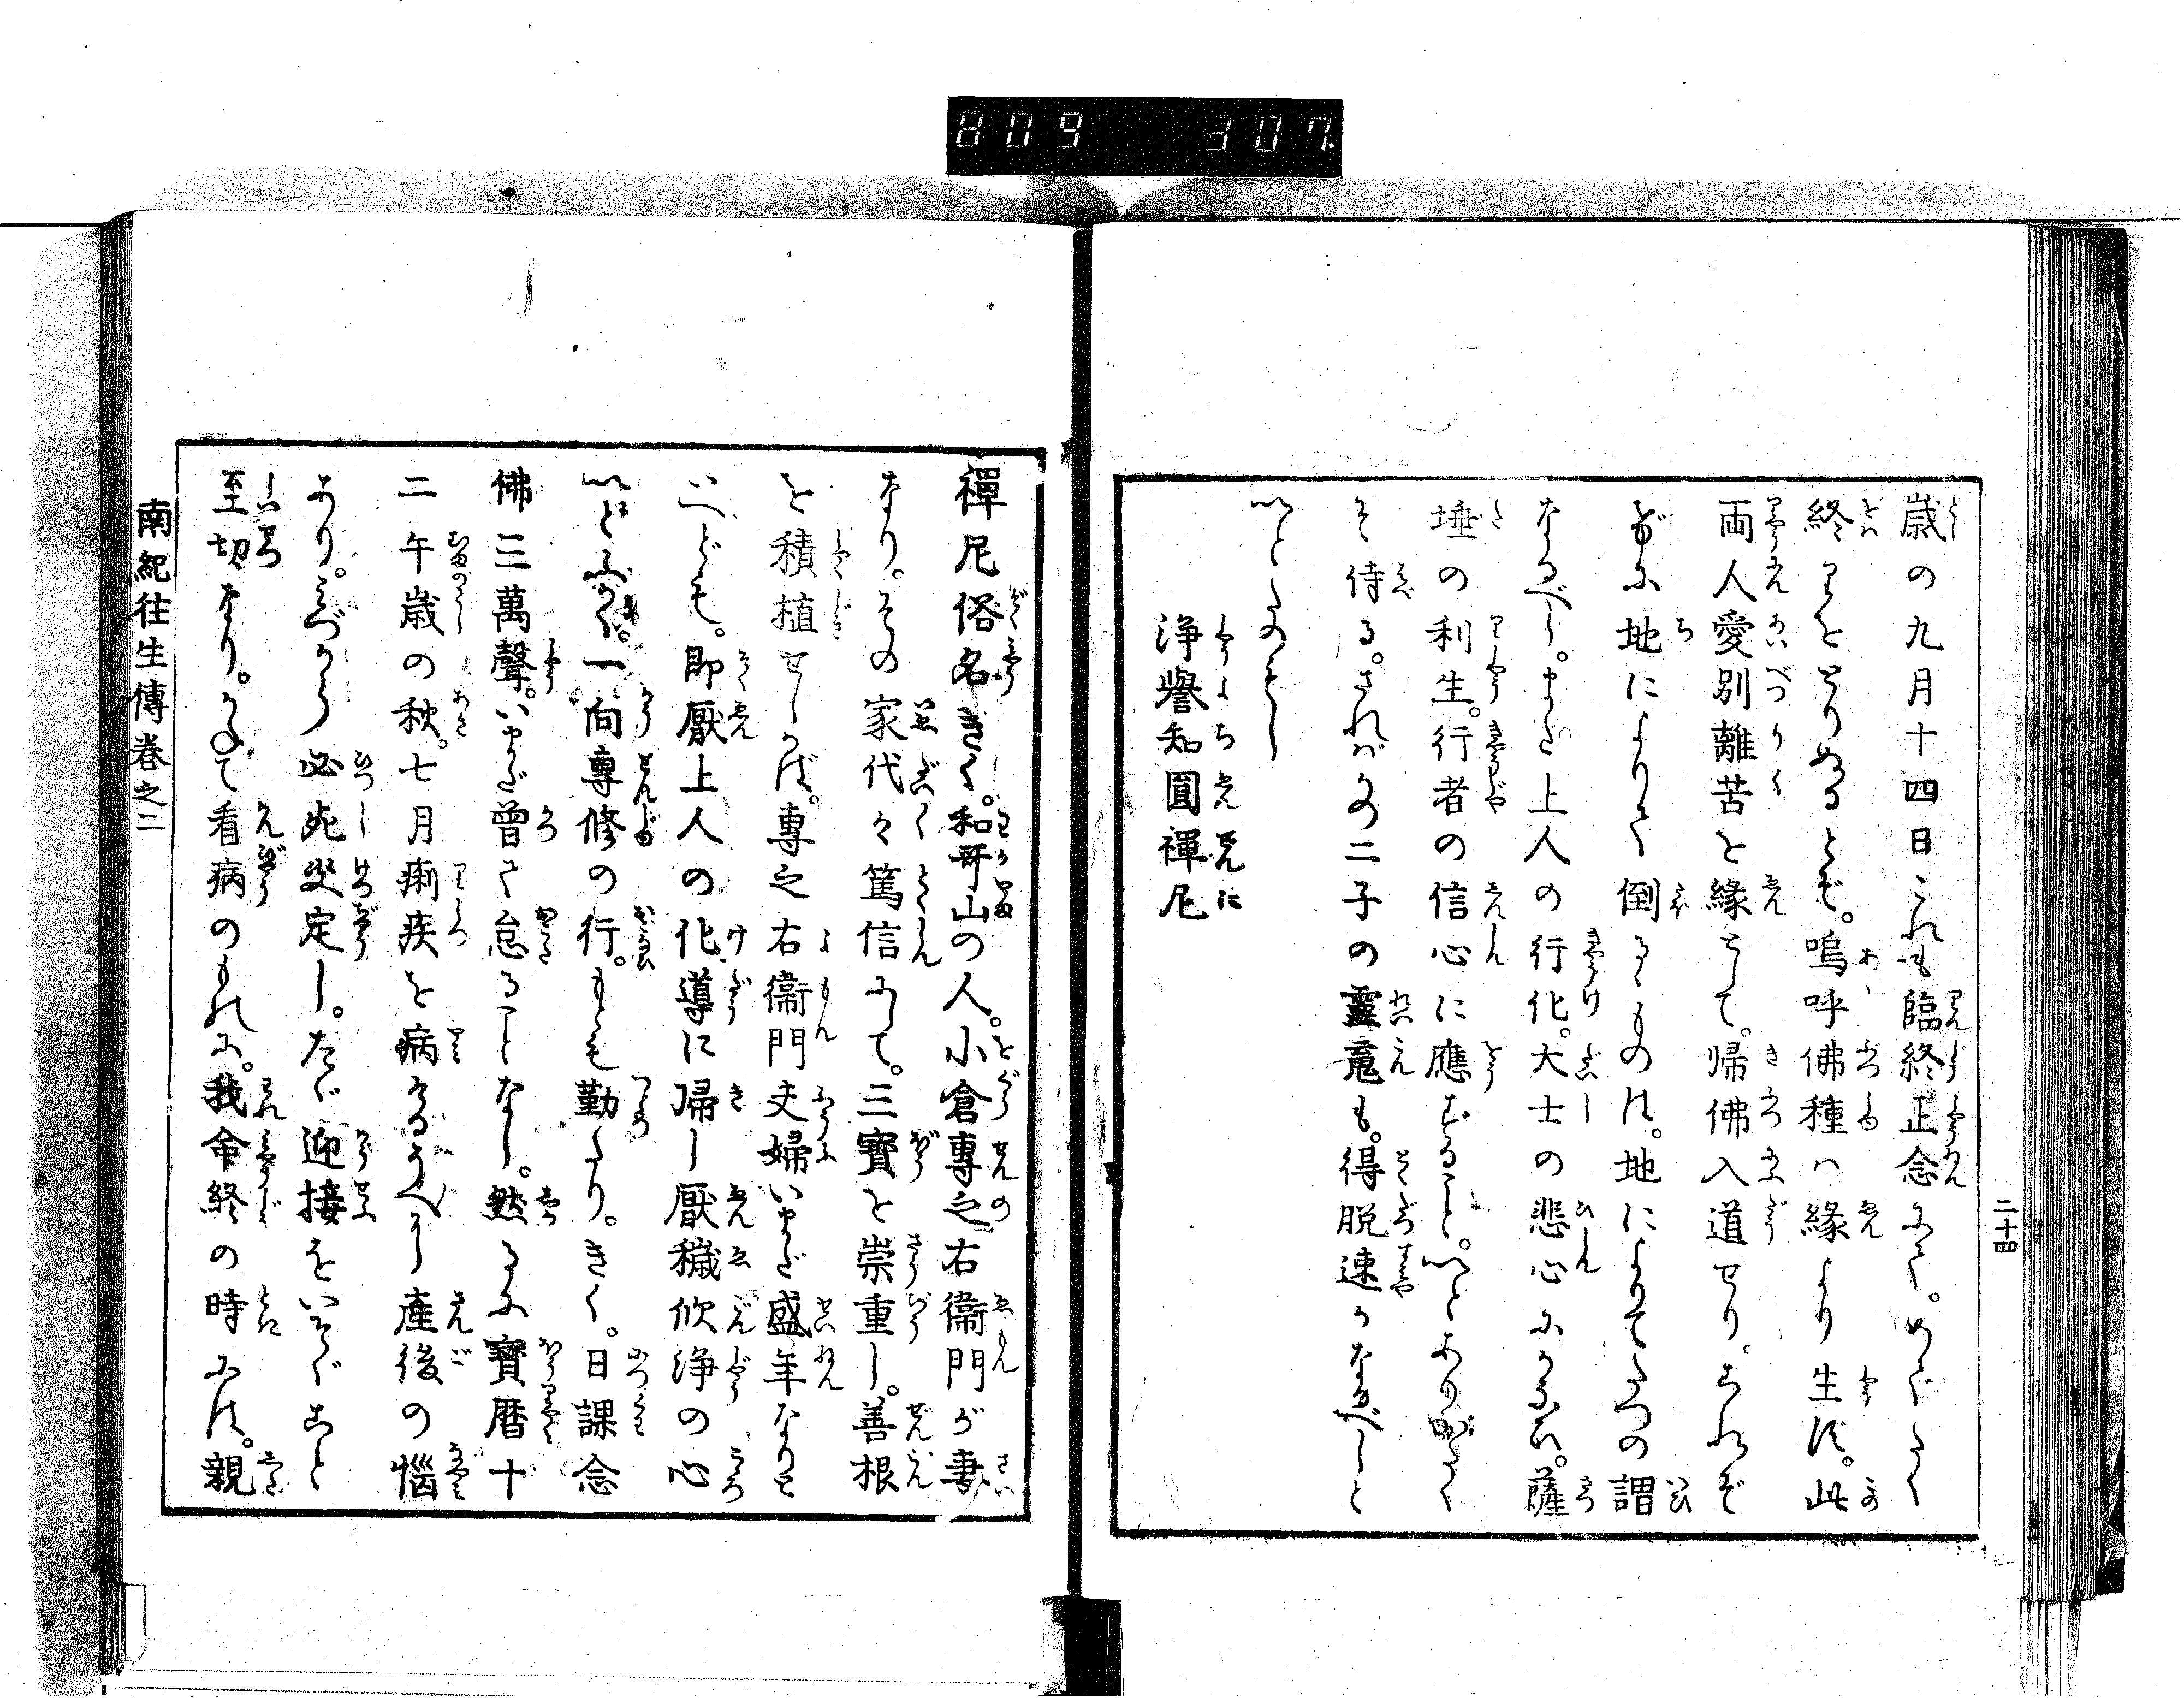 809 307.
二十四
歳の九月十四日これも臨終正念にて。めでたく
終りをとりぬるとぞ。嗚呼佛種ハ縁より生ず。此
両人愛別離苦を縁として。帰佛入道せり。されぞ
げに地によりて倒るゝものは。地によりてたつの謂
なるべし。また上人の行化。大士の悲心にかなひ。薩
埵の利生。行者の信心に應ずること。いとありがたく
ぞ侍る。されバかの二子の霊竜も。得脱速かなるべしと
いとたのもし
浄譽知圓禪尼
禪尼俗名きく。和哥山の人。小倉專之右衞門が妻
なり。その家代々篤信にして。三寳を崇重し。善根
を積植せしかば。專之右衞門夫婦いまだ盛年なりと
いへども。即厭上人の化導に帰し厭穢欣浄の心
いとふかく。一向專修の行。もとも勤たり。きく。日課念
佛三萬聲。いまだ曾て怠ることなし。然るに寳暦十
二午歳の秋。七月痢疾を病けるうへに産後の惱
あり。みづから必死決定し。たゞ迎接をいそぐこと
至切なり。かねて看病のものに。我命終の時には。親
南紀往生傳巻之二